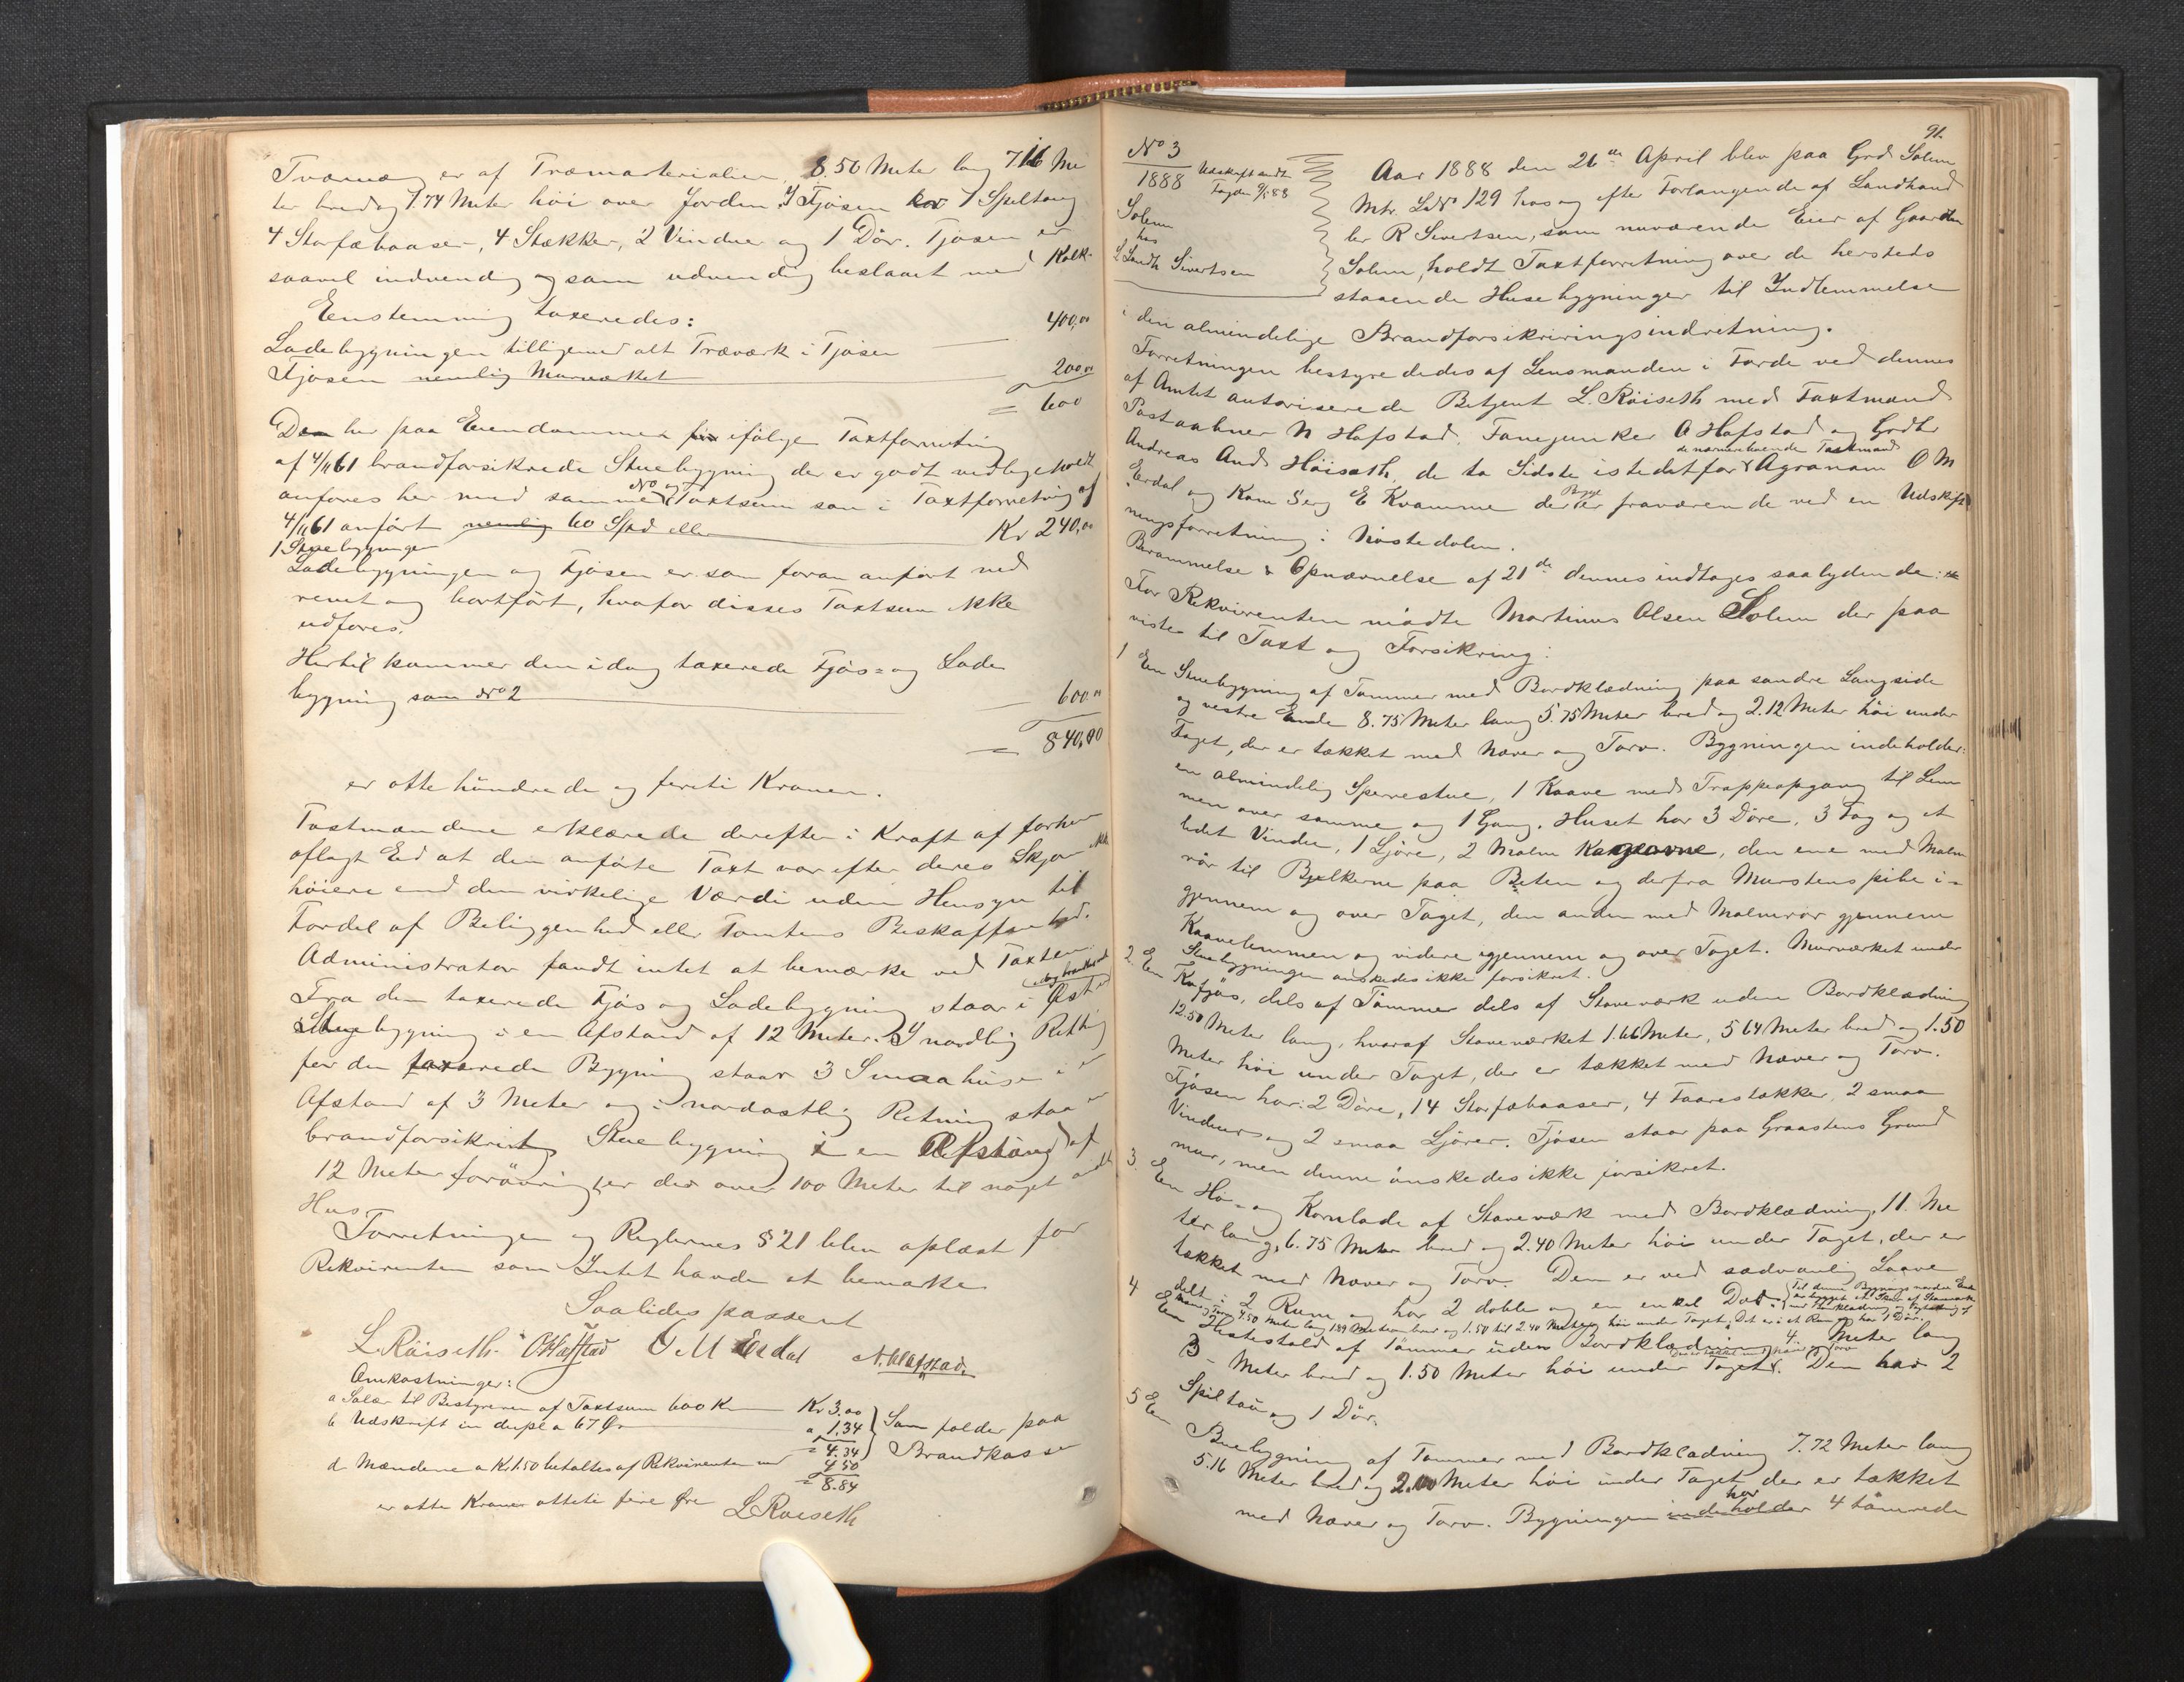 Tværvæg er af Træmaterialier, 8.50 Meter lang 7.16 Me
ter bred og 7.74 Meter høi over Jorden. I Fjøsen er 1 Speltoug
4 Storfæbaaser, 4 Stækker, 2 Vinduer og 1 Dör. Fjøsen er
saavel indvendig som udvendig beslaaet med Kalk.
Eenstemmig taxeredes:
Ladebygningen tilligemed alt Træværk i Fjøsen 400,00
Fjøsen nemlig Murværket 200,00
= 600
Den her paa Eiendommen ifölge Taxtforretning
af 4/11 61 brandforsikrede Stuebygning der er godt vedligeholdt
anföres her med samme No og Taxtsum som i Taxtforretning af
4/11 61 anfört nemlig 60 Spd eller Kr 240,00
1 Stuebygningen
Ladebygningen og Fjøsen er som foran anfört ned
revet og bortfört, hvorfor disses Taxtsum ikke
udföres.
Hertil kommer den idag taxerede Fjös- og Lade
bygning som No 2 600.00
= 840,00
er otte hündrede og firti Kroner.
Taxtmændene erklærede derefter i Kraft af forhen
aflagt Eed at den anförte Taxt var efter deres Skjøn ikke
höiere end den virkelige Værdi uden Hensyn til
Fordel af Beliggenhed eller Tomtens Beskaffenhed.
Administrator fandt intet at bemærke ved Taxten.
Fra den taxerede Fjös og Ladebygning staar i Øst
Stuebygning i en Afstand af 12 Meter. I nordlig Retning
for den taxerede Bygning staar 3 Smaahuse i en
Afstand af 3 Meter og i nordostlig Retning staar en
brandforsikret Stuebygning i en Afstand af
12 Meter forövrig er der over 100 Meter til noget andet
Hus
Forretningen og Reglernes § 21 blev oplæst for
Rekvirenten som Intet havde at bemærke
Saaledes passert
L. Röiseth. O Hafstad O M Erdal N. Hafstad.
Omkostninger:
a Salær til Bestyreren af Taxtsum 600 Kr Kr 3.00
b Udskrift in dupl a 67 Ør " 1.34
= 4.34
Som falder paa
Brandkassen
d Mændene a Kr 1.50 betaltes af Rekvirenten med 4.50
= 8.84
er otte Kroner otteti fire Øre L Röiseth
91.
No 3
1888
Udskrift sendt
Fogden 9/5 88
Solem
hos
Landh Sivertsen
Aar 1888 den 26de April blev paa Grd Solem
Mtr. LNo 129 hos og efter Forlangende af Landhand
ler R Sivertsen, som nuværende Eier af Gaarden
Solem, holdt Taxtforretning over de hersteds
staaende Husebygninger til Indlemmelse
i den almindelige Brandforsikringsindretning.
Forretningen bestyrededes af Lensmanden i Förde ved dennes
af Amtet autoriserede Betjent L. Röiseth med Taxtmænd
Postaabner N Hafstad, Fanejunker O Hafstad og Grdbr
Andreas Ands Höiseth, de to Sidste istedetfor de nærmestboende Taxtmænd Agronom O M
Erdal og Korp Serg E Kvamme der Begge er fraværende ved en Udskift
ningsforretning i Nöstedalen.
Berammelse & Opnævnelse af 21de dennes indtages saalydende:
For Rekvirenten mödte Martinus Olsen Solem der paa
viste til Taxt og Forsikring:
1 Een Stuebygning af Tömmer med Bordklædning paa söndre Langside
og vestre Ende 8.75 Meter lang 5.75 Meter bred og 2.12 Meter höi under
Taget, der er tækket med Næver og Torv. Bygningen indeholder:
en almindelig Sperrestue, 1 Kaave med Trappeopgang til Lem
men over samme og 1 Gang. Huset har 3 Döre, 3 Fag og et
lidet Vindue, 1 Ljöre, 2 Malm Kageovne, den ene med Malm
rör til Bjelkerne paa Beten og derfra Murstens pibe i=
gjennem og over Taget, den anden med Malmrör gjennem
Kaavelemmen og videre igjennem og over Taget. Murværket under
Stuebygningen önskedes ikke forsikret.
2. Een Kofjös, dels af Tömmer dels af Staveværk uden Bordklædning
12.50 Meter lang, hvoraf Staveværket 1.66 Meter, 5 64 Meter bred og 1.50
Meter höi under Taget, der er tækket med Næver og Torv.
Fjösen har: 2 Döre, 14 Storfæbaaser, 4 Faarestækker, 2 smaa
Vinduer og 2 smaa Ljörer. Fjösen staar paa Graastens Grund
mur, men denne önskedes ikke forsikret.
3. Een Hö- og Kornlade af Staveværk med Bordklædning, 11. Me
ter lang, 6.75 Meter bred og 2.40 Meter höi under Taget, der er
tækket med Næver og Torv. Den er ved sædvanlig Laave
delt i 2 Rum og har 2 doble og en enkel Dör. Til denne Bygnings nordre Ende
er bygget et Skur af Staveværk
med Bordklædning og tækket af
Næver og Torv 4.50 Meter lang 1.89 Meter bred og 1.50 til 2.40 Meter höi under Taget. Det er i et Rum og har 1 Dör.
4 Een Hestestald af Tömmer uden Bordklædning 4. Meter lang
3 Meter bred og 1.50 Meter höi under Taget der er tækket med Næver og Torv. Den har 2
Spiltau og 1 Dör.
5 Een Buebygning af Tömmer med Bordklædning 7.72 Meter lang
5.16 Meter bred og 2.00 Meter höi under Taget der er tækket
med Næver og Torv. Bygningen indeholder har 4 tömrede